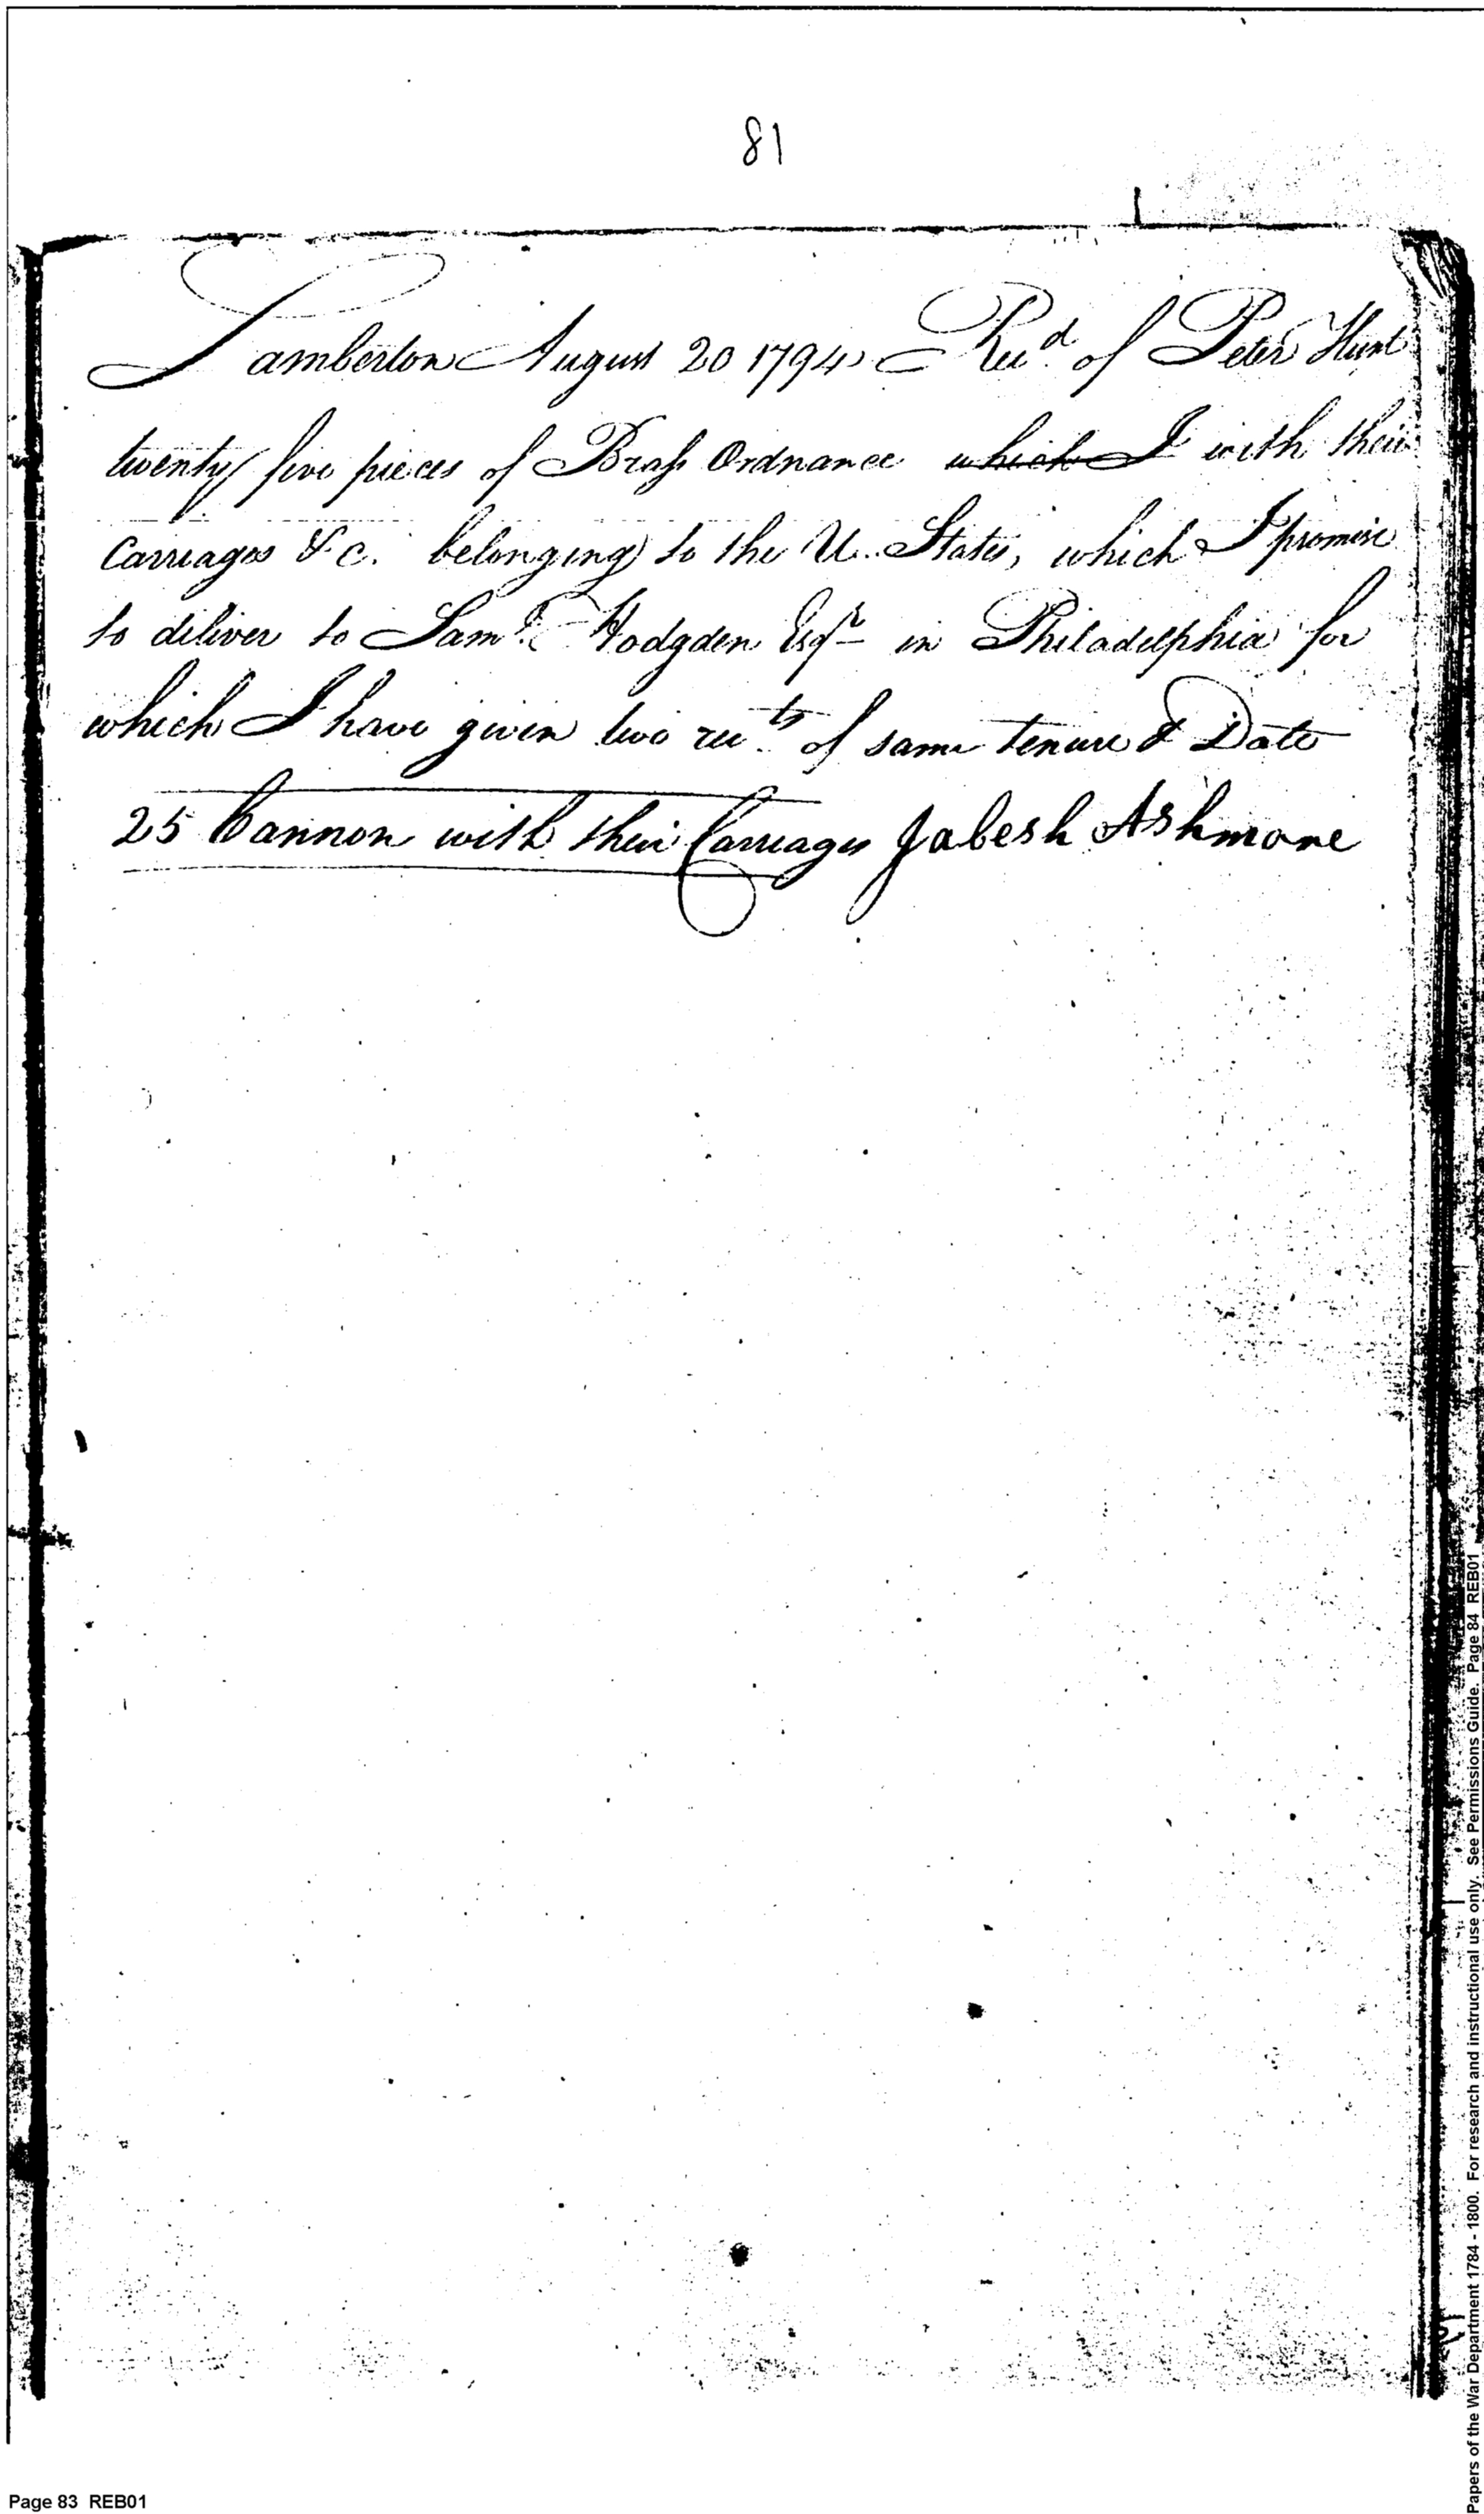 81
Lamberton August 20 1794 Recd. of Peter Hunt
twenty five pieces of Brass Ordnance which I with their
Carriages &c. belonging to the U. States, which I promise
to deliver to Saml. Hodgden Esqr in Philadelphia for
which I have given two rects. of same tenure & Date
25 Cannon with their Carriages Jabesh Ashmore
Page 83 REB01
Papers of the War Department 1784 - 1800. For research and instructional use only. See Permissions Guide. Page 84 REB01